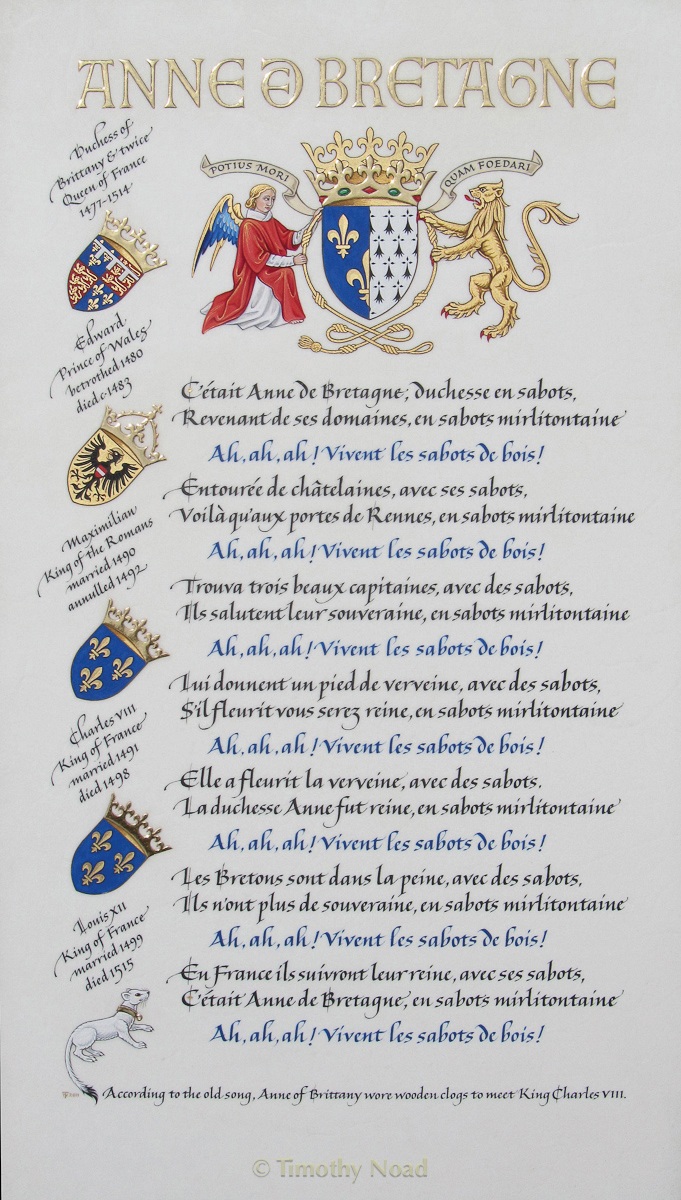 ANNE DE BRETAGNE
Duchess of
Brittany & twice
Queen of France
1477-1514
POTIUS MORI
QUAM FOEDARI
Edward
Prince of Wales
betrothed 1480
died c.1483
Maximilian
King of the Romans
married 1490
annulled 1492
Charles VIII
King of France
married 1491
died 1498
Louis XII
King of France
married 1499
died 1515
C'était Anne de Bretagne; duchesse en sabots,
Revenant de ses domaines, en sabots mirlitontaine
Ah, ah, ah! Vivent les sabots de bois!
Entourée de châtelaines, avec ses sabots,
Voilà qu'aux portes de Rennes, en sabots mirlitontaine
Ah, ah, ah! Vivent les sabots de bois!
Trouva trois beaux capitaines, avec des sabots,
Ils salutent leur souveraine, en sabots mirlitontaine
Ah, ah, ah! Vivent les sabots de bois!
Lui donnent un pied de verveine, avec des sabots,
S'il fleurit vous serez reine, en sabots mirlitontaine
Ah, ah, ah! Vivent les sabots de bois!
Elle a fleurit la verveine, avec des sabots.
La duchesse Anne fut reine, en sabots mirlitontaine
Ah, ah, ah! Vivent les sabots de bois!
Les Bretons sont dans la peine, avec des sabots,
Ils n'ont plus de souveraine, en sabots mirlitontaine
Ah, ah, ah! Vivent les sabots de bois!
En France ils suivront leur reine, avec ses sabots,
C'était Anne de Bretagne, en sabots mirlitontaine
Ah, ah, ah! Vivent les sabots de bois!
According to the old song, Anne of Brittany wore wooden clogs to meet King Charles VIII.
© Timothy Noad